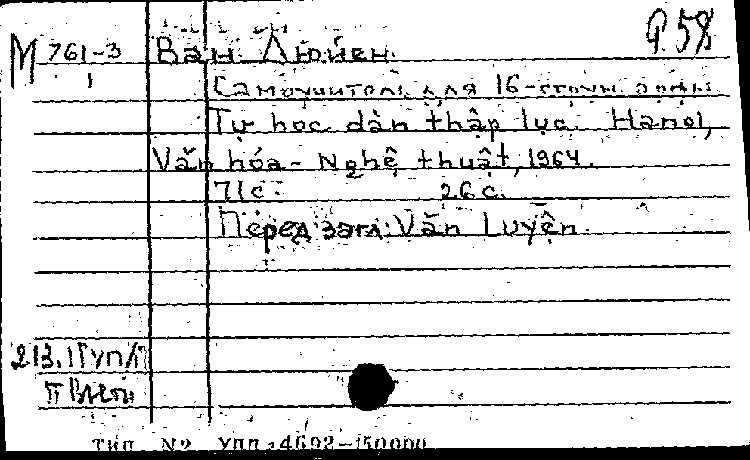 М 761-3
1
Ван Люйен
Р 58
Самоучитель для 16-струн. домры
Tự học dàn thập lục. Hanoi,
Văn hóa - Nghệ thuật, 1964.
71 с. 26 с.
Перед загл: Văn Luyện
213.
п Вьетн
тип. №2 УПП 4692-150000